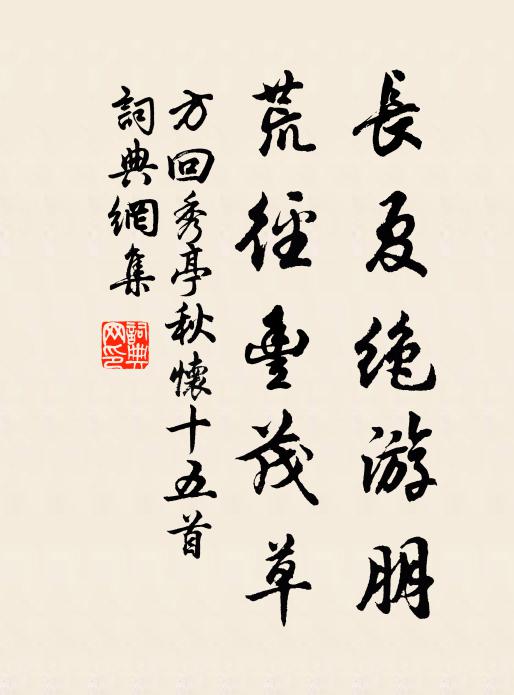 長夏绝游朋
荒徑豊茂草
方回秀亭秋懷十五首
詞典網集
詞典網印